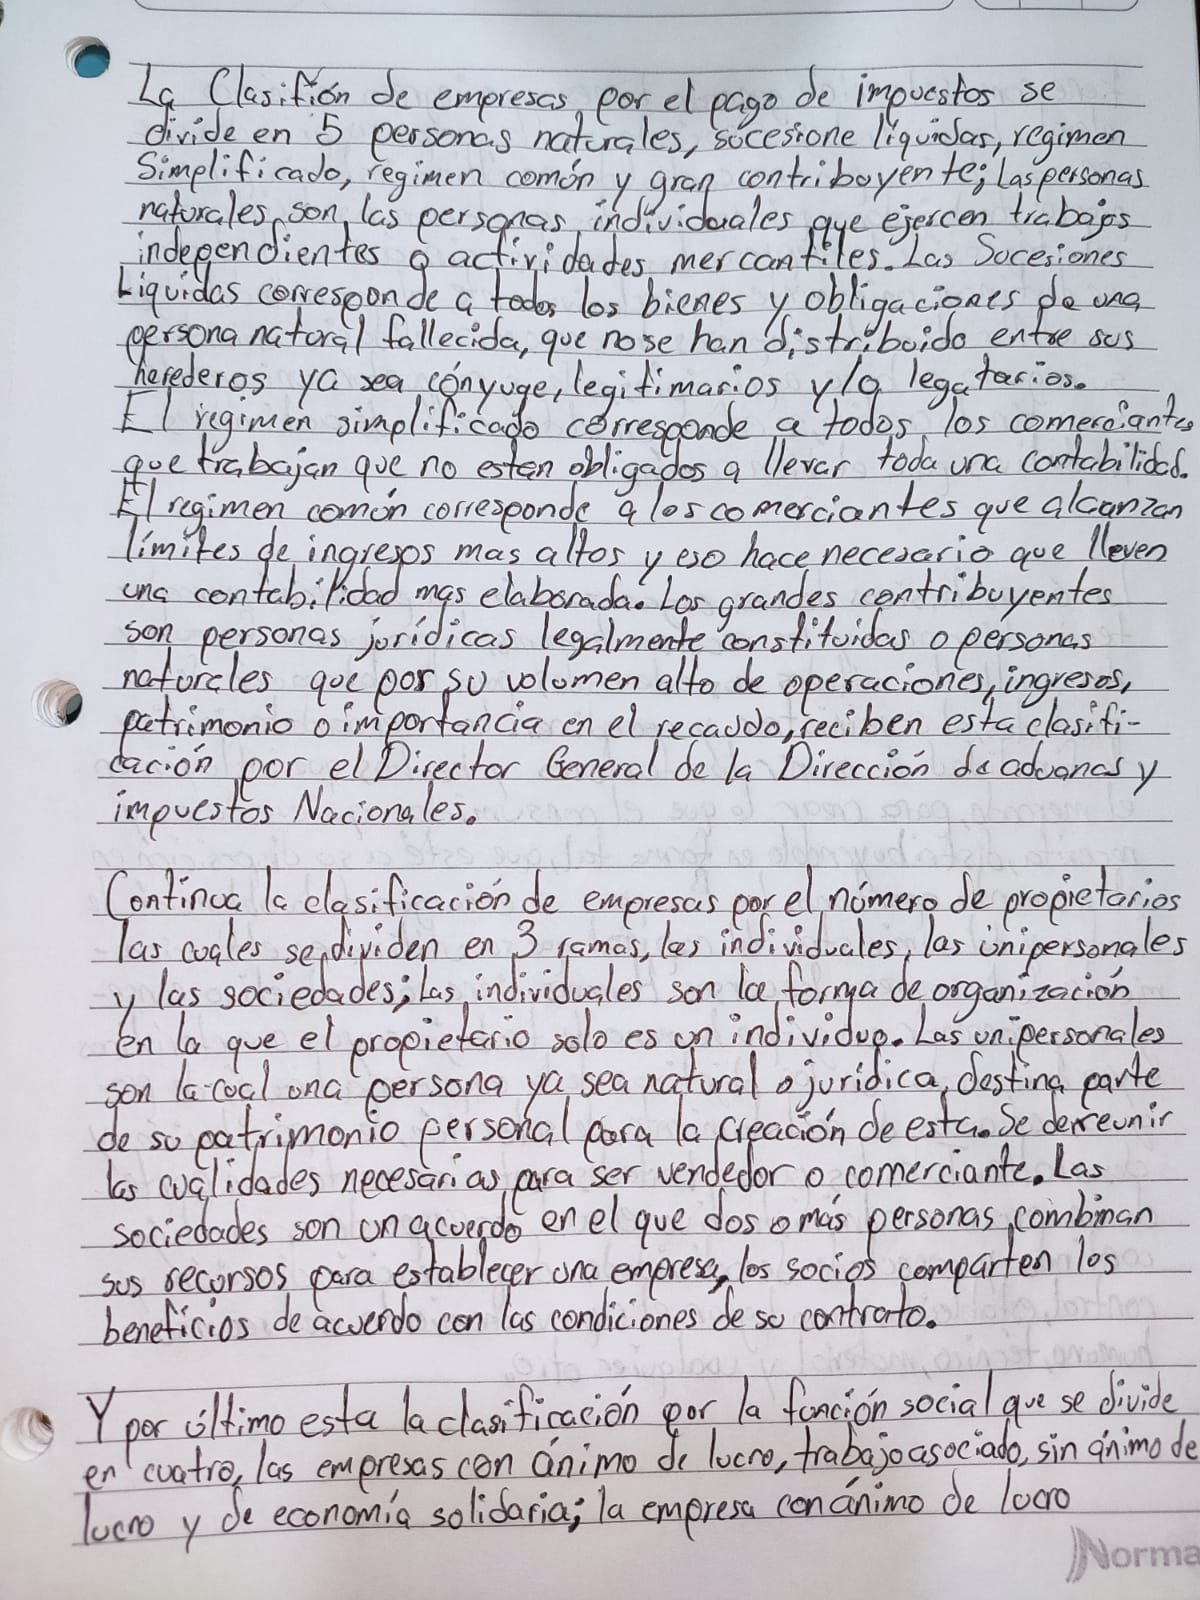 La Clasifión de empresas por el pago de impuestos se
divide en 5 personas naturales, sucesione líquidas, regimen
Simplificado, regimen común y gran contribuyente; Las personas
naturales son las personas individuales que ejercen trabajos
independientes o actividades mercantiles. Las Sucesiones
Liquidas corresponde a todos los bienes y obligaciones de una
persona natural fallecida, que no se han distribuido entre sus
herederos ya sea cónyuge, legitimarios y/o legatarios.
El regimen simplificado corresponde a todos los comerciantes
que trabajan que no estan obligados a llevar toda una contabilidad.
El regimen común corresponde a los comerciantes que alcanzan
límites de ingresos mas altos y eso hace necesario que lleven
una contabilidad mas elaborada. Los grandes contribuyentes
son personas jurídicas legalmente constituidas o personas
naturales que por su volumen alto de operaciones, ingresos,
patrimonio o importancia en el recaudo, reciben esta clasifi-
cación por el Director General de la Dirección de aduanas y
impuestos Nacionales.
Continua la clasificación de empresas por el número de propietarios
las cuales se dividen en 3 ramas, las individuales, las unipersonales
y las sociedades; Las individuales son la forma de organización
en la que el propietario solo es un individuo. Las unipersonales
son la cual una persona ya sea natural o jurídica, destina parte
de su patrimonio personal para la creación de esta. Se de reunir
las cualidades necesarias para ser vendedor o comerciante. Las
sociedades son un acuerdo en el que dos o más personas combinan
sus recursos para establecer una empresa, los socios comparten los
beneficios de acuerdo con las condiciones de su contrato.
Y por último esta la clasificación por la función social que se divide
en cuatro, las empresas con ánimo de lucro, trabajo asociado, sin ánimo de
lucro y de economía solidaria; la empresa con ánimo de lucro
Norma